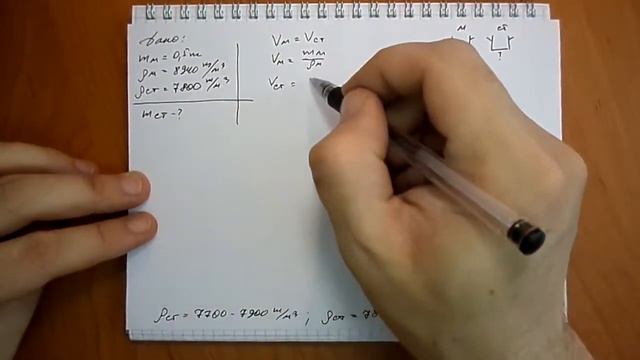 Дано:
mм = 0,5m
ρм = 8940 m/м³
ρст = 7800 m/м³
mст - ?
Vм = Vст
Vм = mм/ρм
Vст =
м ст
?
ρст = 7700 - 7900 m/м³ ; ρст = 78